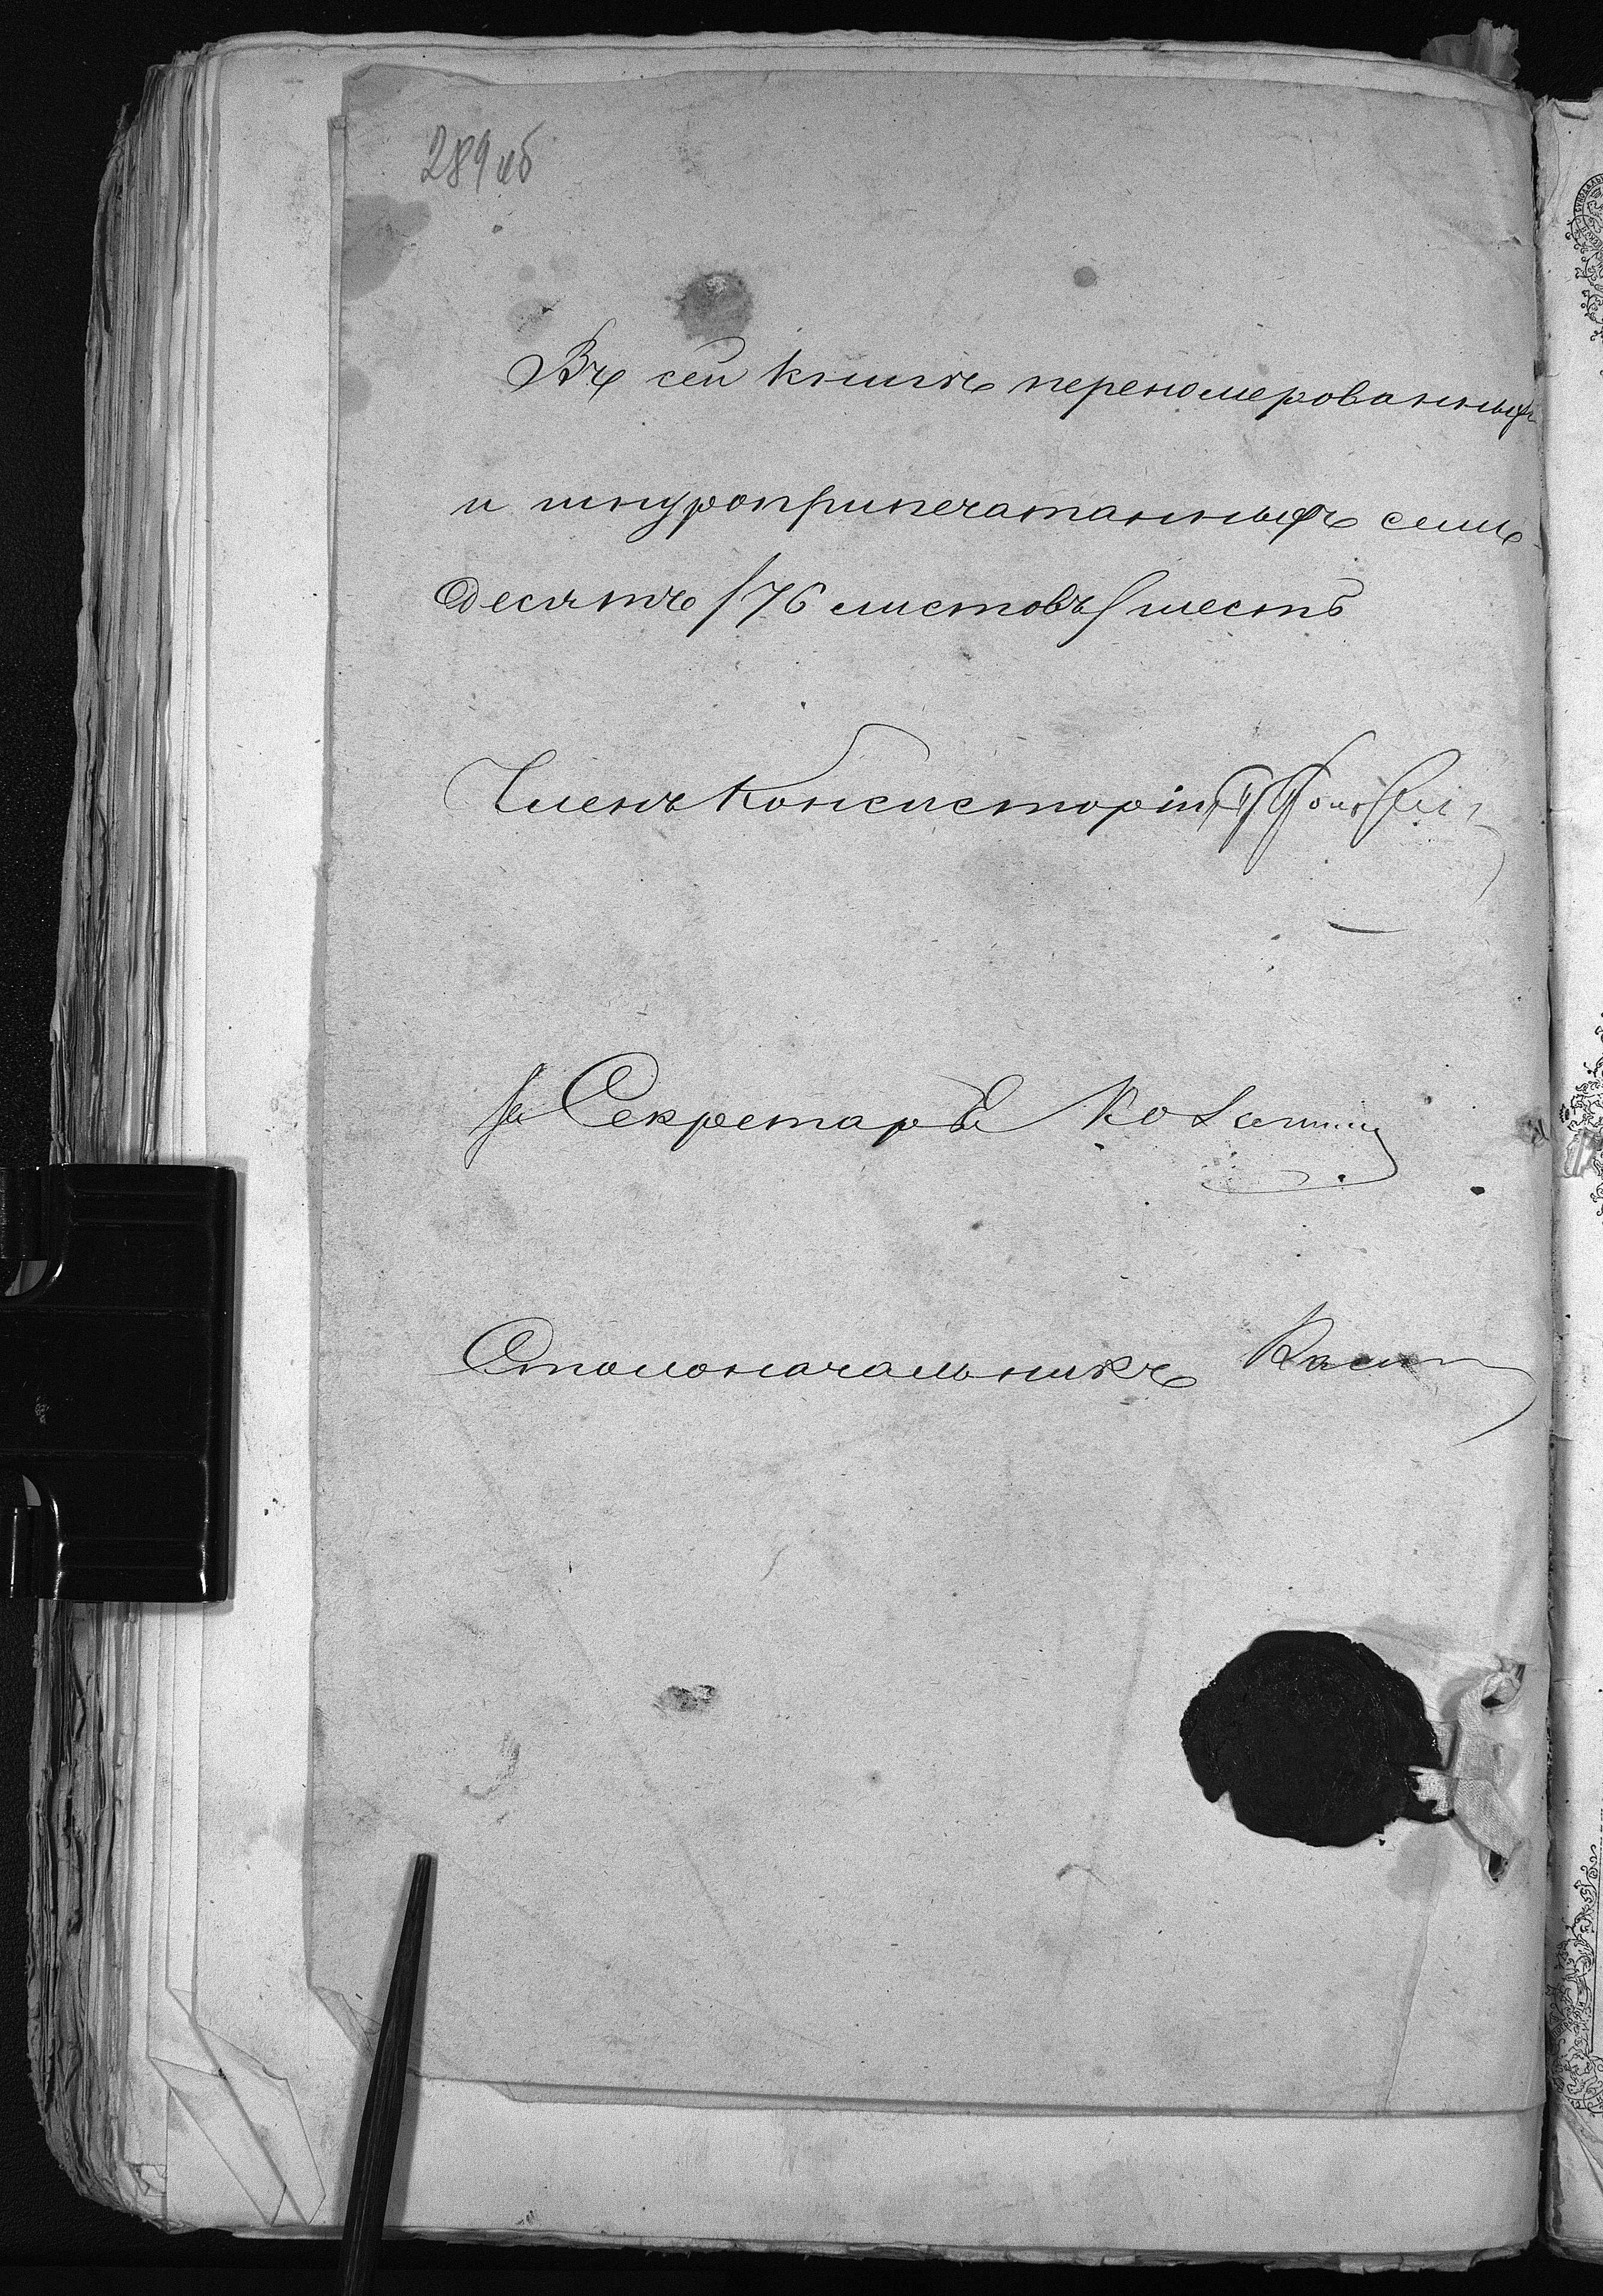 289 об
Въ сей книгѣ переномерованныхъ
и шнуроприпечатанныхъ семь-
десятъ /76 листовъ/ шесть
Членъ Консисторіи
За Секретаря
Столоначальникъ